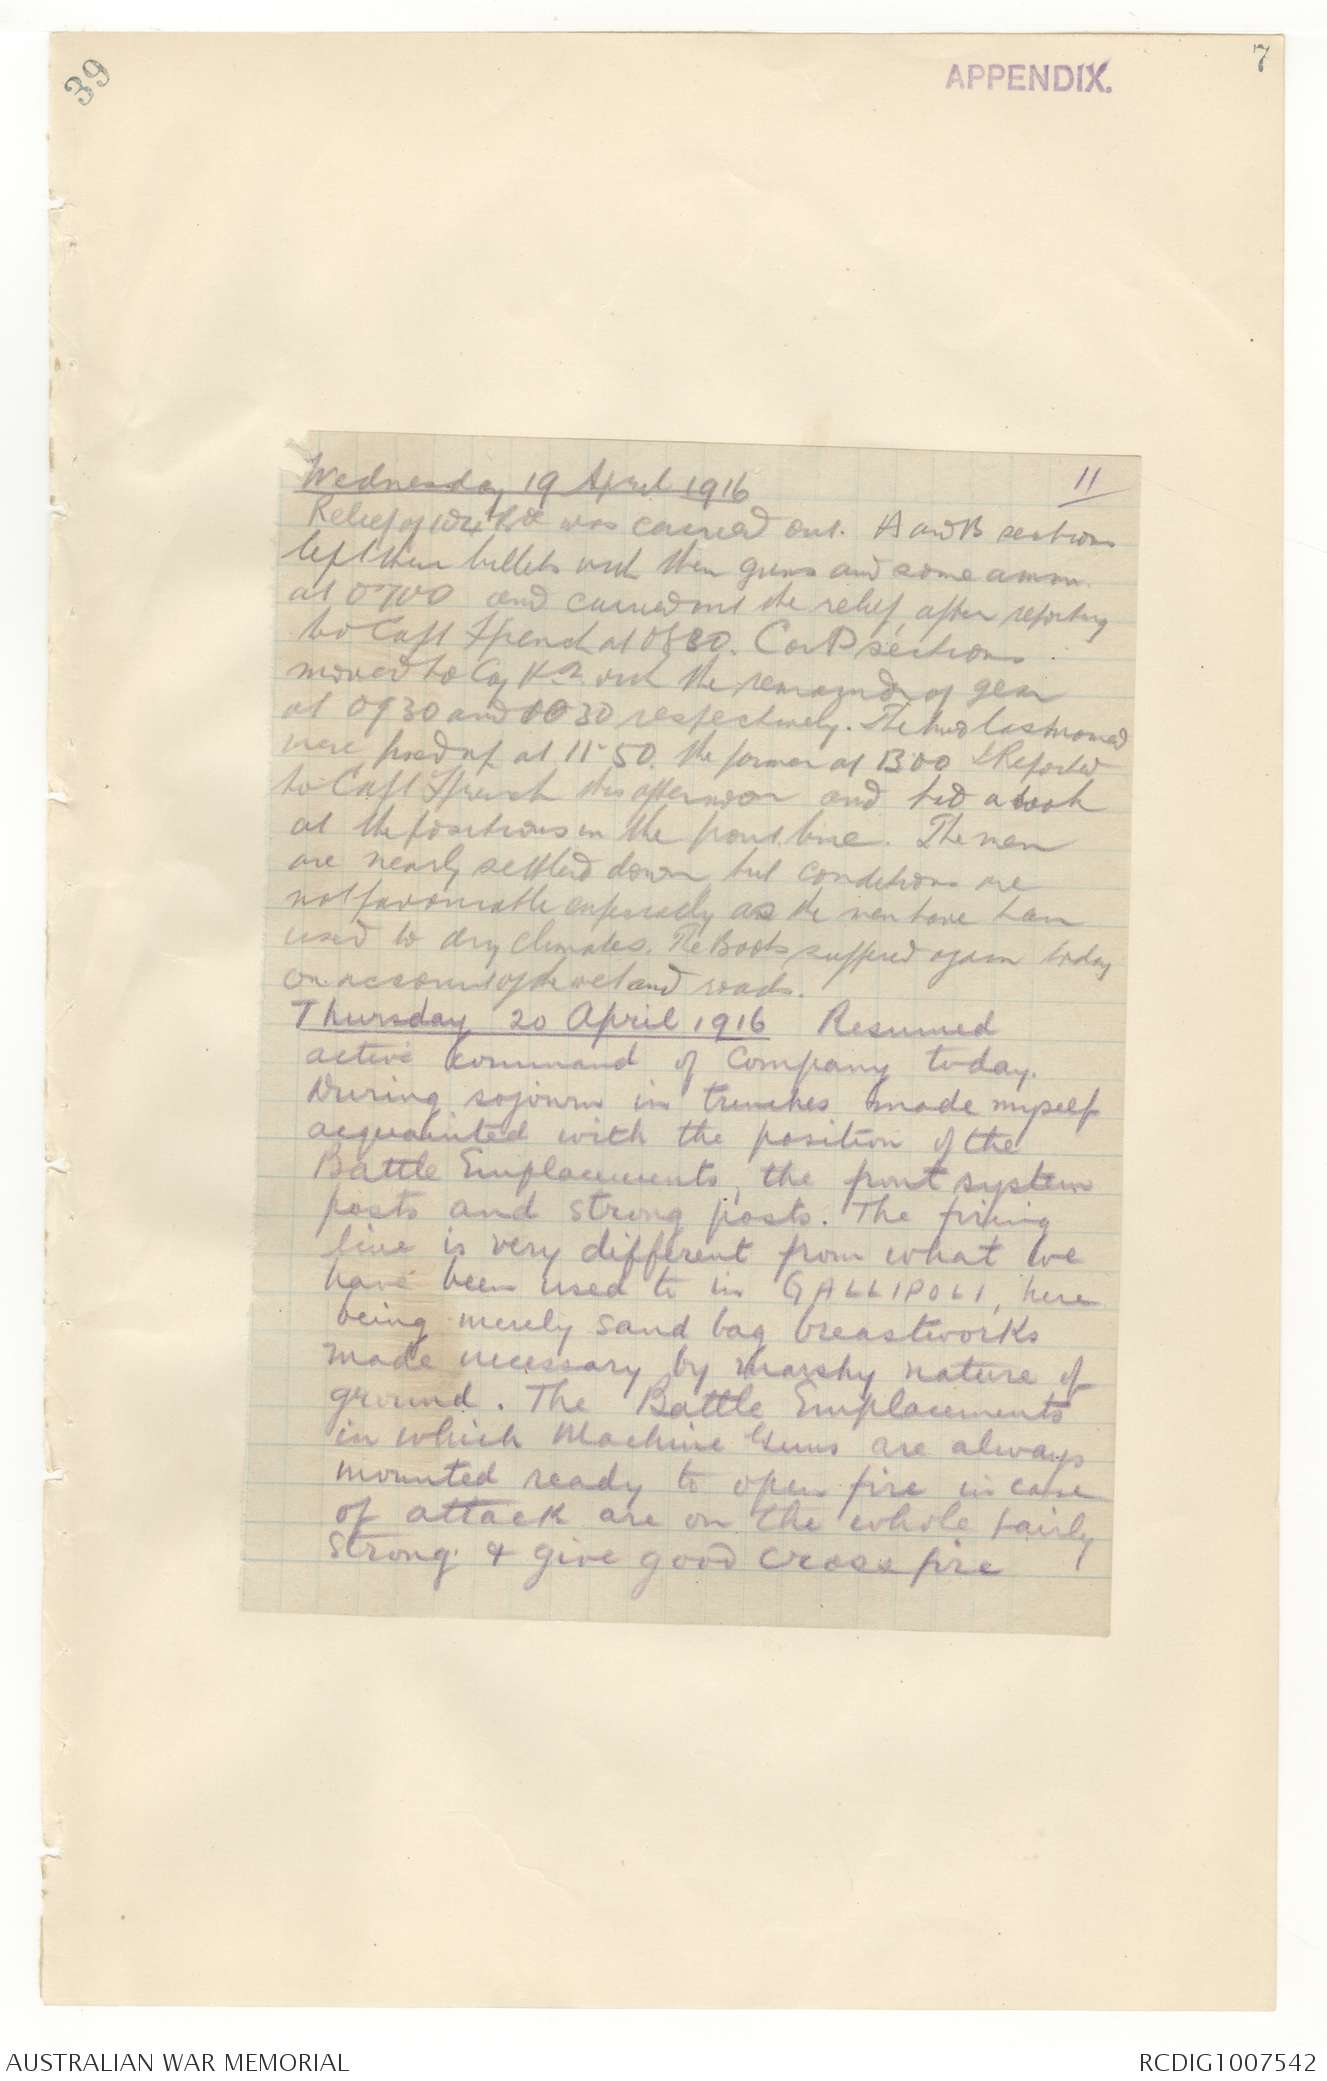 39
APPENDIX.
7
Wednesday 19 April 1916
11
Relief of was carried out. A and B sections
left their billets with their guns and some ammn.
at 0700 and carried out the relief, after reporting
to Capt Ffrench at 0830. C and D sections
moved to Coy Hqrs. with the remainder of gear
at 0930 and 1030 respectively. The two last named
were fixed up at 11-50. the former at 1300 I Reported
to Capt Ffrench this afternoon and had a look
at the positions in the front line. The men
are nearly settled down but conditions are
not favourable especially as the men have been
used to dry climates. The Boots suffered again today
on account of the wet and roads.
Thursday 20 April 1916 Resumed
active command of Company today.
During sojourn in trenches made myself
acquainted with the position of the
Battle Emplacements, the front system
posts and strong posts. The firing
line is very different from what we
have been used to in GALLIPOLI, here
being merely sand bag breastworks
made necessary by marshy nature of
ground. The Battle Emplacements
in which Machine Guns are always
mounted ready to open fire in case
of attack are on the whole fairly
strong & give good cross fire
AUSTRALIAN WAR MEMORIAL
RCDIG1007542